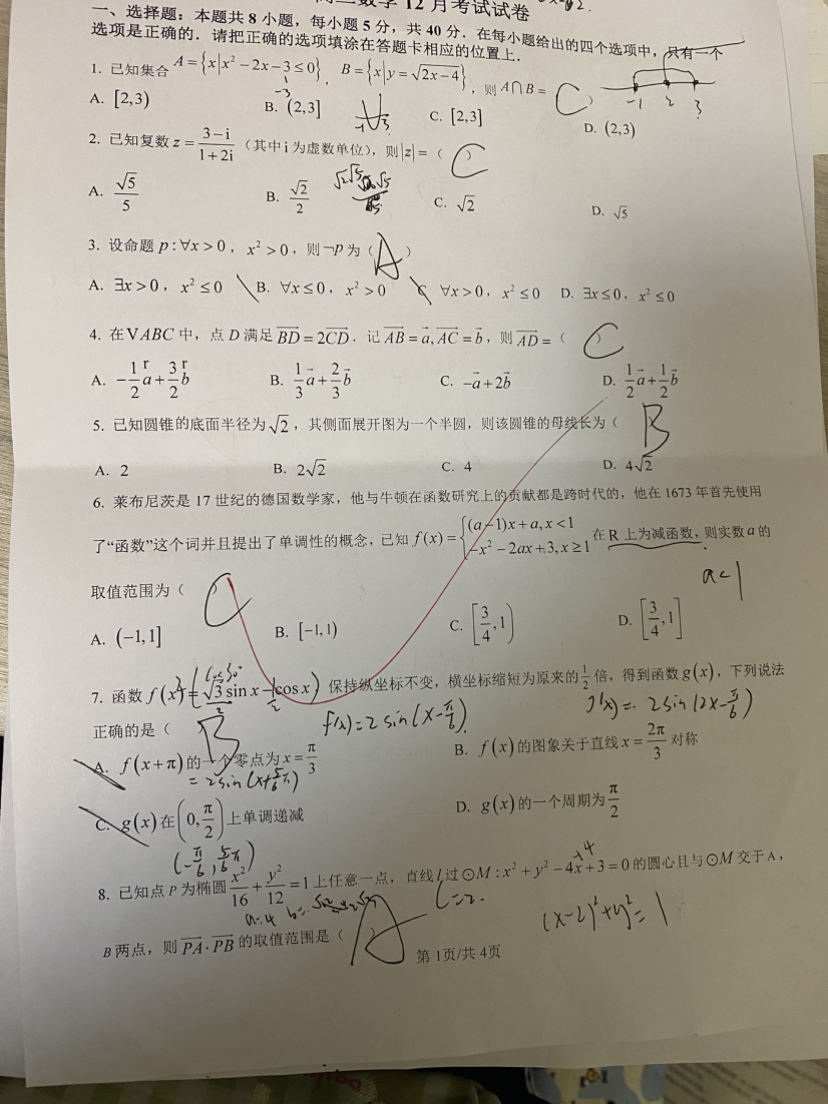 数学12月考试试卷
一、选择题：本题共8小题，每小题5分，共40分．在每小题给出的四个选项中，只有一个
选项是正确的．请把正确的选项填涂在答题卡相应的位置上．
1. 已知集合 A={x|x²−2x−3≤0}，B={x|y=√(2x−4)}，则 A∩B=（ C ）
-3
-1 2 3
A. [2,3) B. (2,3] C. [2,3] D. (2,3)
-1 3
2. 已知复数 z=(3−i)/(1+2i)（其中i为虚数单位），则|z|=（ C ）
A. √5/5 B. √2/2 C. √2 D. √5
3. 设命题 p:∀x>0，x²>0，则¬p为（ A ）
A. ∃x>0，x²≤0 B. ∀x≤0，x²>0 C. ∀x>0，x²≤0 D. ∃x≤0，x²≤0
4. 在VABC中，点D满足 BD=2CD．记 AB=a, AC=b，则 AD=（ C ）
A. −1/2 a+3/2 b B. 1/3 a+2/3 b C. −a+2b D. 1/2 a+1/2 b
5. 已知圆锥的底面半径为√2，其侧面展开图为一个半圆，则该圆锥的母线长为（ B
A. 2 B. 2√2 C. 4 D. 4√2
6. 莱布尼茨是17世纪的德国数学家，他与牛顿在函数研究上的贡献都是跨时代的，他在1673年首先使用
了“函数”这个词并且提出了单调性的概念，已知 f(x)={(a−1)x+a, x<1; −x²−2ax+3, x≥1 在R上为减函数，则实数a的
a<1
取值范围为（ C
A. (−1,1] B. [−1,1) C. [3/4,1) D. [3/4,1]
7. 函数 f(x)=√3 sin x−cos x 保持纵坐标不变，横坐标缩短为原来的1/2倍，得到函数g(x)，下列说法
f(x)=2sin(x-π/6) g(x)=2sin(2x-π/6)
正确的是（ B
A. f(x+π)的一个零点为x=π/3 B. f(x)的图象关于直线x=2π/3对称
=2sin(x+5/6π)
C. g(x)在(0,π/2)上单调递减 D. g(x)的一个周期为π/2
(-π/6, 5/6π)
8. 已知点P为椭圆 x²/16+y²/12=1上任意一点，直线l过⊙M:x²+y²−4x+3=0的圆心且与⊙M交于A，
+4
a=4 c=2. (x-2)²+y²=1
B两点，则 PA·PB 的取值范围是（ A ）
第1页/共4页